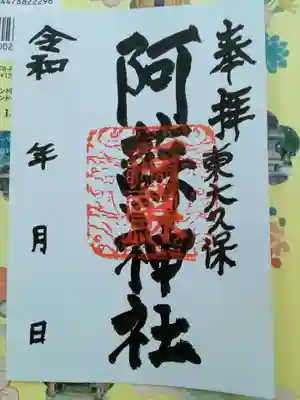 奉拝
東大久保
阿蘇神社
令和 年 月 日
4478822296